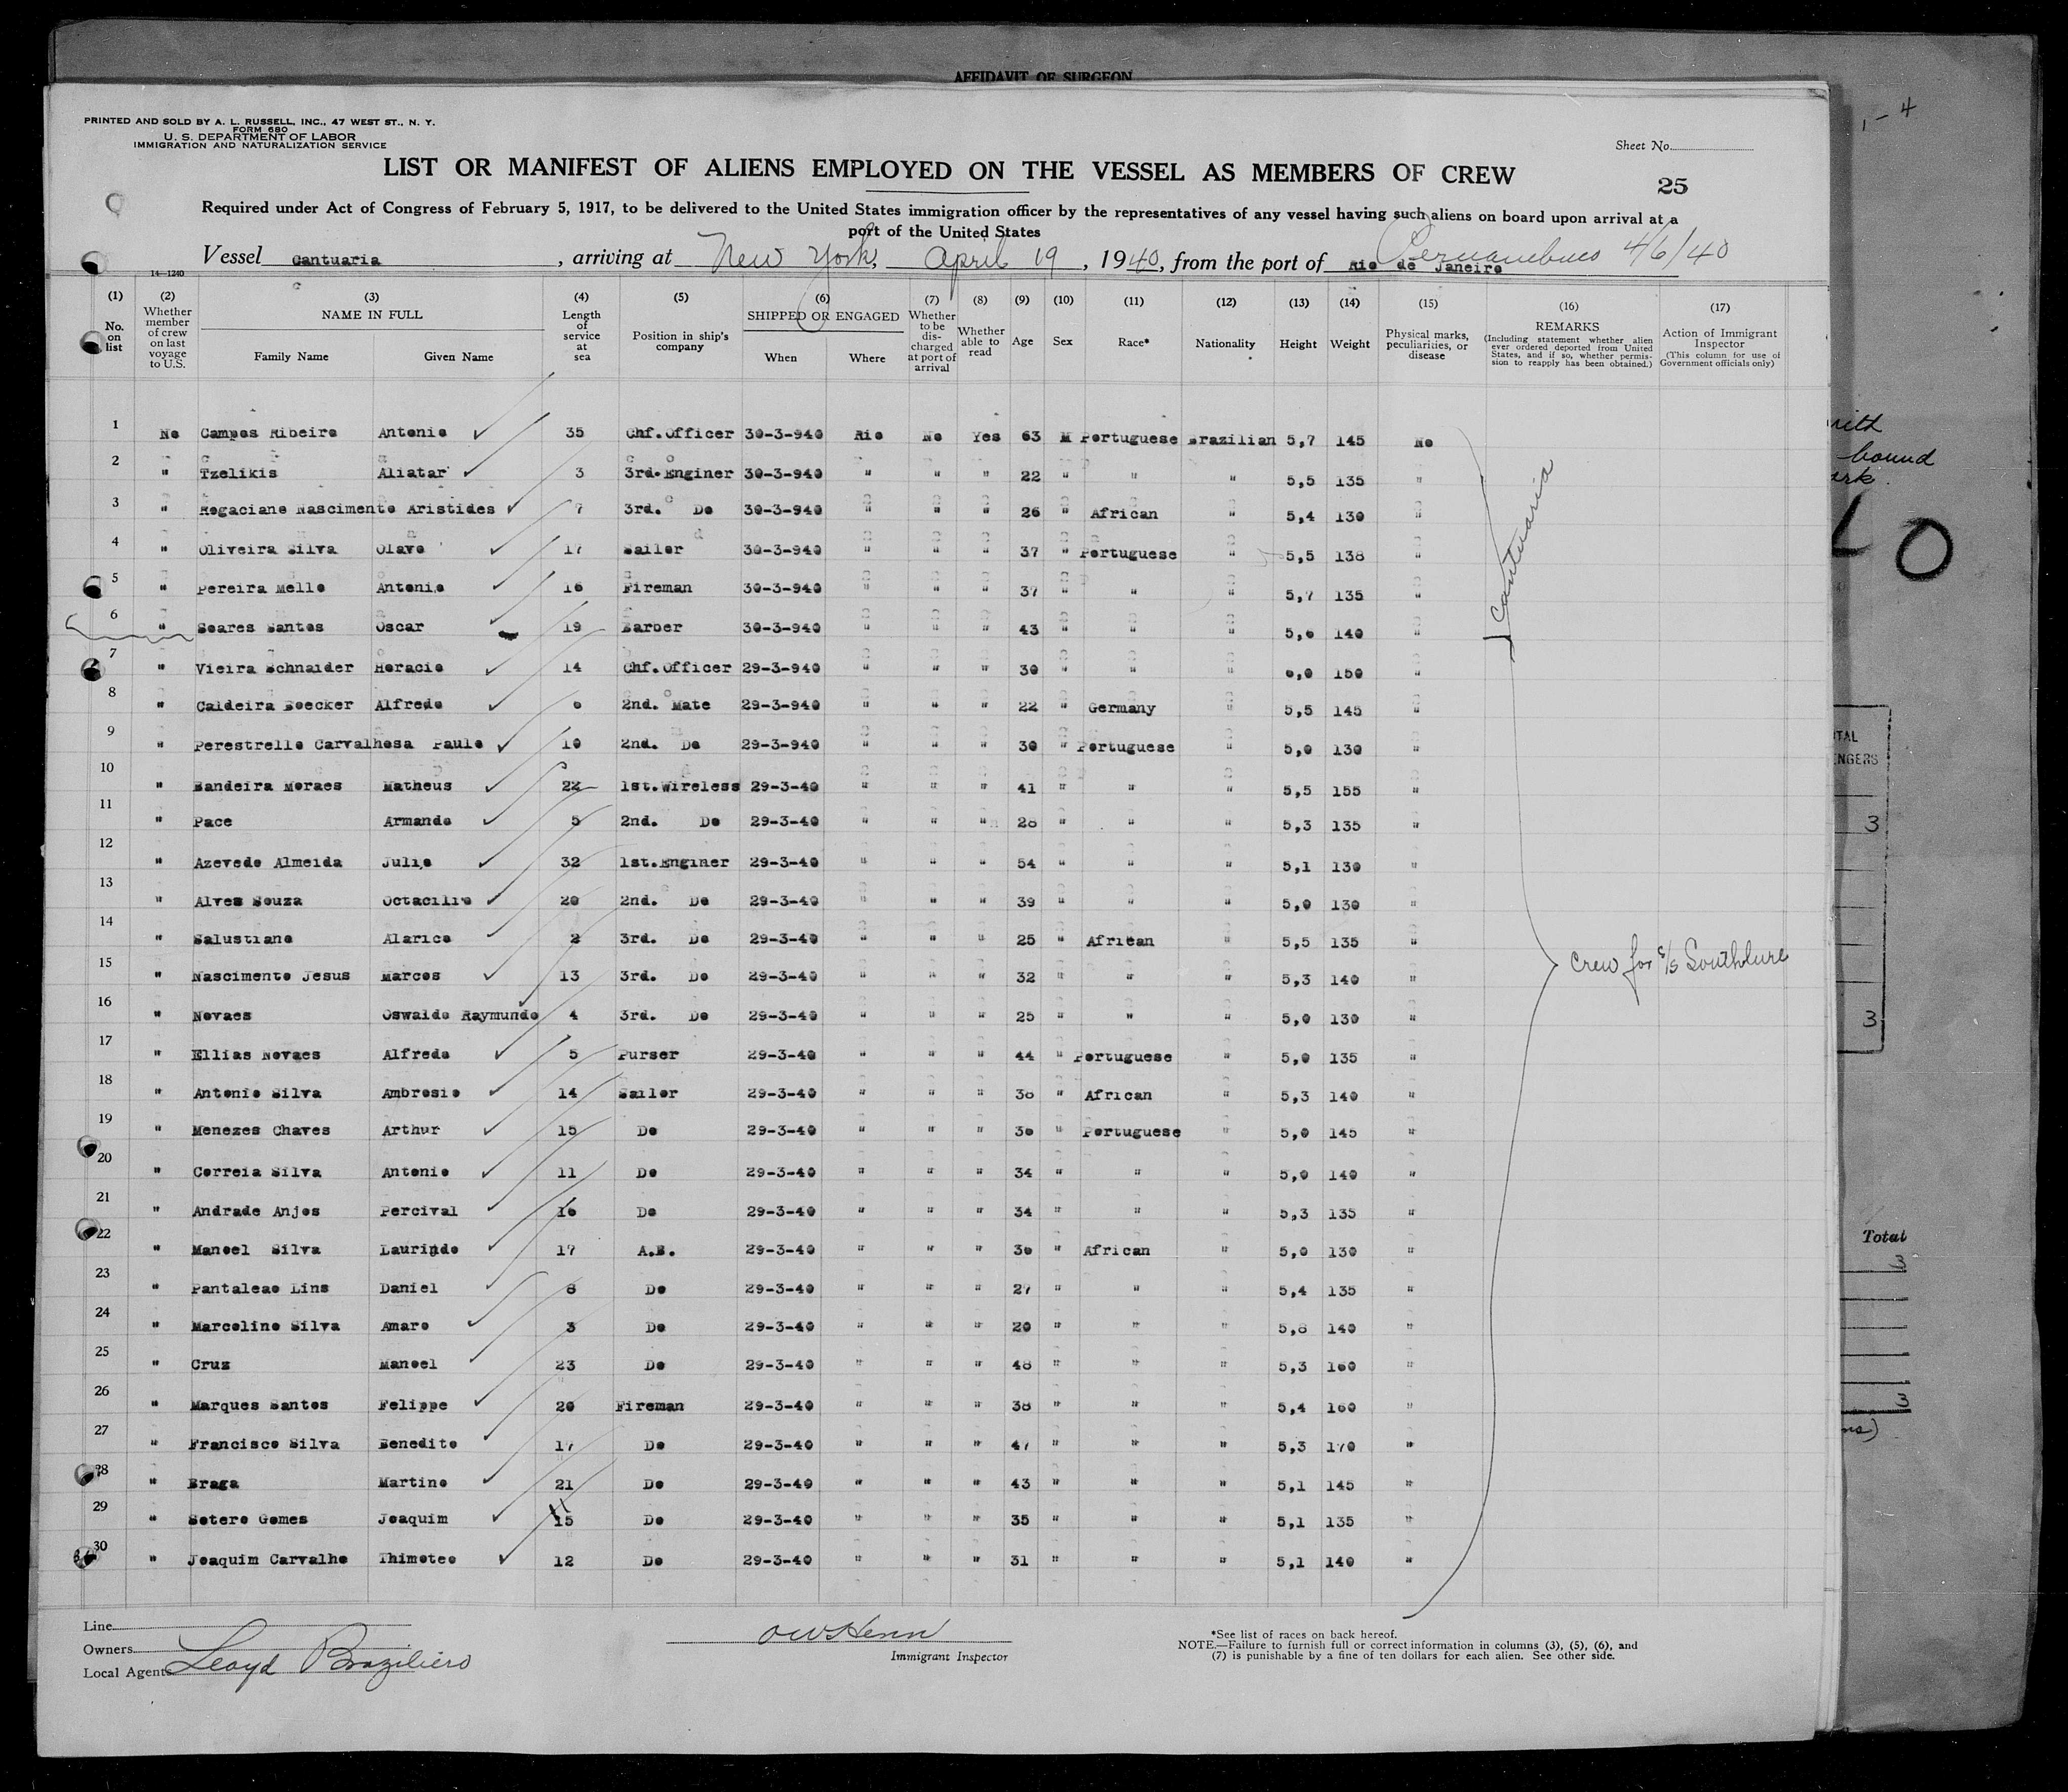 AFFIDAVIT OF SURGEON
PRINTED AND SOLD BY A. L. RUSSELL, INC., 47 WEST ST., N. Y.
FORM 680
U. S. DEPARTMENT OF LABOR
IMMIGRATION AND NATURALIZATION SERVICE
Sheet No.
LIST OR MANIFEST OF ALIENS EMPLOYED ON THE VESSEL AS MEMBERS OF CREW
25
Required under Act of Congress of February 5, 1917, to be delivered to the United States immigration officer by the representatives of any vessel having such aliens on board upon arrival at a
port of the United States
Vessel Cantuaria, arriving at New York, April 19, 1940, from the port of Rio de Janeiro Pernambuco 4/6/40
14-1240
(1) No. on list
(2) Whether member of crew on last voyage to U.S.
(3) NAME IN FULL Family Name Given Name
(4) Length of service at sea
(5) Position in ship's company
(6) SHIPPED OR ENGAGED When Where
(7) Whether to be discharged at port of arrival
(8) Whether able to read
(9) Age
(10) Sex
(11) Race*
(12) Nationality
(13) Height
(14) Weight
(15) Physical marks, peculiarities, or disease
(16) REMARKS (Including statement whether alien ever ordered deported from United States, and if so, whether permission to reapply has been obtained.)
(17) Action of Immigrant Inspector (This column for use of Government officials only)
1 No Campos Ribeiro Antonio 35 Chf.Officer 30-3-940 Rio No Yes 63 M Portuguese Brazilian 5,7 145 No
2 " Tzelikis Aliatar 3 3rd.Enginer 30-3-940 " " " 22 " " " 5,5 135 "
3 " Rogaciano Nascimento Aristides 7 3rd. Do 30-3-940 " " " 26 " African " 5,4 130 "
4 " Oliveira Silva Olavo 17 Sailor 30-3-940 " " " 37 " Portuguese " 5,5 138 "
5 " Pereira Mello Antonio 16 Fireman 30-3-940 " " " 37 " " " 5,7 135 "
6 " Soares Santos Oscar 19 Barber 30-3-940 " " " 43 " " " 5,6 140 "
7 " Vieira Schnaider Horacio 14 Chf.Officer 29-3-940 " " " 30 " " " 6,0 150 "
8 " Caldeira Boecker Alfredo 6 2nd. Mate 29-3-940 " " " 22 " Germany " 5,5 145 "
9 " Perestrello Carvalhosa Paulo 10 2nd. Do 29-3-940 " " " 30 " Portuguese " 5,0 130 "
10 " Bandeira Moraes Matheus 22 1st.Wireless 29-3-40 " " " 41 " " " 5,5 155 "
11 " Pace Armando 5 2nd. Do 29-3-40 " " " 28 " " " 5,3 135 "
12 " Azevedo Almeida Julio 32 1st.Enginer 29-3-40 " " " 54 " " " 5,1 130 "
13 " Alves Souza Octacilio 20 2nd. Do 29-3-40 " " " 39 " " " 5,0 130 "
14 " Salustiano Alarico 2 3rd. Do 29-3-40 " " " 25 " African " 5,5 135 "
15 " Nascimento Jesus Marcos 13 3rd. Do 29-3-40 " " " 32 " " " 5,3 140 "
16 " Novaes Oswaldo Raymundo 4 3rd. Do 29-3-40 " " " 25 " " " 5,0 130 "
17 " Ellias Novaes Alfredo 5 Purser 29-3-40 " " " 44 " Portuguese " 5,0 135 "
18 " Antonio Silva Ambrosio 14 Sailor 29-3-40 " " " 38 " African " 5,3 140 "
19 " Menezes Chaves Arthur 15 Do 29-3-40 " " " 36 " Portuguese " 5,0 145 "
20 " Correia Silva Antonio 11 Do 29-3-40 " " " 34 " " " 5,0 140 "
21 " Andrade Anjos Percival 16 Do 29-3-40 " " " 34 " " " 5,3 135 "
22 " Manoel Silva Laurindo 17 A.B. 29-3-40 " " " 36 " African " 5,0 130 "
23 " Pantaleao Lins Daniel 8 Do 29-3-40 " " " 27 " " " 5,4 135 "
24 " Marcolino Silva Amaro 3 Do 29-3-40 " " " 20 " " " 5,8 140 "
25 " Cruz Manoel 23 Do 29-3-40 " " " 48 " " " 5,3 160 "
26 " Marques Santos Felippe 20 Fireman 29-3-40 " " " 38 " " " 5,4 160 "
27 " Francisco Silva Benedito 17 Do 29-3-40 " " " 47 " " " 5,3 170 "
28 " Braga Martino 21 Do 29-3-40 " " " 43 " " " 5,1 145 "
29 " Sotero Gomes Joaquim 15 Do 29-3-40 " " " 35 " " " 5,1 135 "
30 " Joaquim Carvalho Thimoteo 12 Do 29-3-40 " " " 31 " " " 5,1 140 "
Cantuaria
Crew for s/s Southlure
Line
Owners
Local Agents Lloyd Braziliero
OWHenn
Immigrant Inspector
*See list of races on back hereof.
NOTE.—Failure to furnish full or correct information in columns (3), (5), (6), and
(7) is punishable by a fine of ten dollars for each alien. See other side.
bound
3
3
Total
3
3